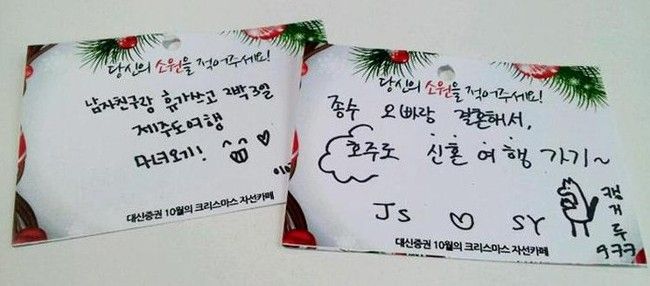 당신의 소원을 적어주세요!
남자친구랑 휴가쓰고 2박3일
제주도여행
다녀오기!
대신증권 10월의 크리스마스 자선카페
당신의 소원을 적어주세요!
종수 오빠랑 결혼해서,
호주로 신혼여행 가기~
JS ♡ SY
캥거루
ㅋㅋㅋ
대신증권 10월의 크리스마스 자선카페